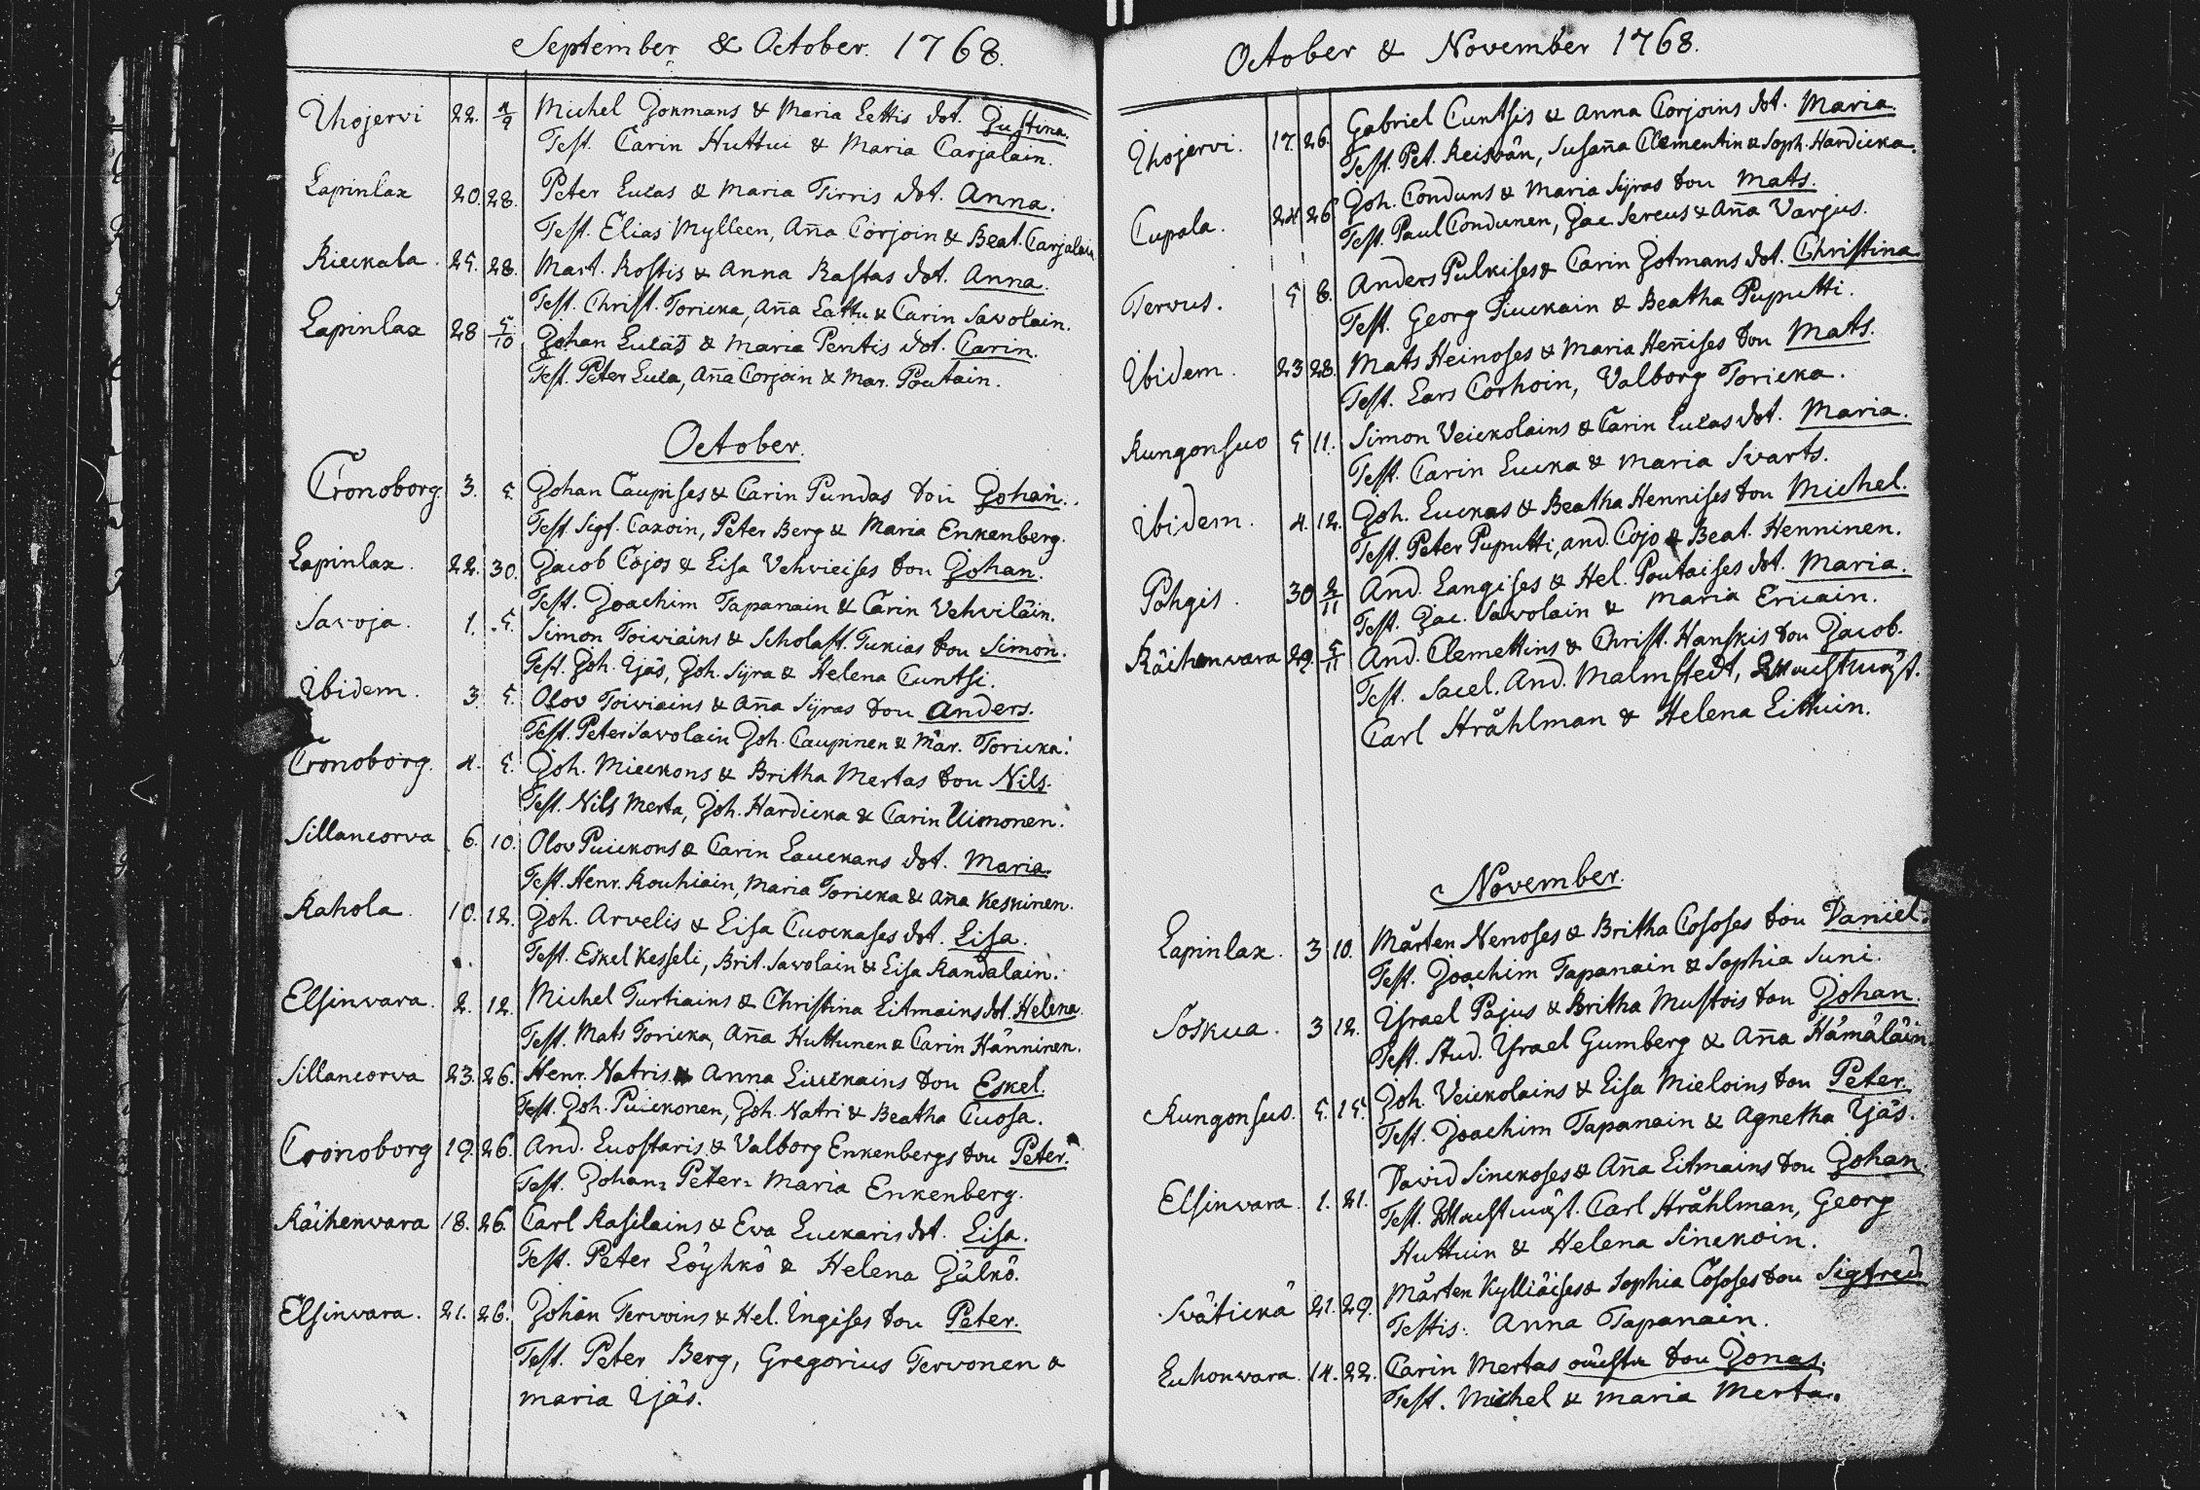 September & October. 1768.
Ihojervi 22. 1/9 Michel Jonmans & Maria Lettis dot. Justina.
Test. Carin Huttu & Maria Carjalain.
Lapinlax 20. 28. Peter Lucas & Maria Tirris dot. Anna.
Test. Elias Mylleen, Aña Corjoin & Beat. Carjalain
Rieckala. 25. 28. Mart. Rostis & Anna Rastas dot. Anna.
Test. Christ. Toricka, Aña Lattu & Carin Savolain.
Lapinlax 28 5/10 Johan Lucas & Maria Pentis dot. Carin.
Test. Peter Luca, Aña Corjoin & Mar. Poutain.
October.
Cronoborg. 3. 5. Johan Caupises & Carin Pundas son Johan.
Test. Sigf. Caxoin, Peter Berg & Maria Enkenberg.
Lapinlax. 22. 30. Jacob Cojos & Lisa Vehvieises son Johan.
Test. Joachim Tapanain & Carin Vehviläin.
Savoja. 1. 5. Simon Toiviains & Scholast. Tukias son Simon.
Test. Joh. Ijäs, Joh. Sijra & Helena Cuntsi.
Ibidem. 3 5. Olov Toiviains & Aña Sijras son Anders.
Test. Peter Savolain Joh. Caupinen & Mar. Toricka.
Cronoborg. 4. 5. Joh. Mieckons & Britha Mertas son Nils.
Test. Nils Merta, Joh. Hardicka & Carin Uimonen.
Sillancorva 6. 10. Olov Puickons & Carin Lauckans dot. Maria.
Test. Henr. Rouhiain, Maria Toricka & Aña Keskinen.
Rahola. 10. 12. Joh. Arvelis & Lisa Cuockases dot. Lisa.
Test. Eskel Kesseli, Brit. Savolain & Lisa Randalain.
Elsinvara. 2. 12. Michel Turtiains & Christina Litmains dot. Helena
Test. Mats Toricka, Aña Huttunen & Carin Hänninen.
Sillancorva 23. 26. Henr. Natris & Anna Liuckains son Eskel.
Test. Joh. Puickonen, Joh. Natri & Beatha Cuosa.
Cronoborg 19. 26. And. Luostaris & Valborg Enkenbergs son Peter.
Test. Johan= Peter= Maria Enkenberg.
Räihenvara 18. 26. Carl Rasilains & Eva Luckaris dot. Lisa.
Test. Peter Löyhkö & Helena Jülkö.
Elsinvara. 21. 26. Johan Tervoins & Hel. Ingises son Peter.
Test. Peter Berg, Gregorius Tervonen &
Maria Ijäs.
October & November 1768.
Ihojervi. 17. 26. Gabriel Cuntsis & Anna Corjoins dot. Maria.
Test. Pet. Reisvän, Susaña Clementin & Soph. Hardicka.
Cupala. 24 26 Joh. Conduns & Maria Sijras son Mats.
Test. Paul Condunen, Jac. Sereus & Aña Varjus.
Tervus. 5 8. Anders Pulkises & Carin Jotmans dot. Christina
Test. Georg Piuckain & Beatha Puputti.
Ibidem. 23 28. Mats Heinoses & Maria Heñises son Mats.
Test. Lars Corhoin, Valborg Toricka.
Kungonsuo 5 11. Simon Veickolains & Carin Lucas dot. Maria.
Test. Carin Lucka & Maria Svarts.
Ibidem. 4. 12. Joh. Luckas & Beatha Hennises son Michel.
Test. Peter Puputti, and. Cojo & Beat. Henninen.
Pohgis. 30 2/11 And. Langises & Hel. Poutaises dot. Maria.
Test. Jac. Savolain & Maria Ericain.
Räihenvara 29. 5/11 And. Clemettins & Christ. Hanskis son Jacob.
Test. Sacel. And. Malmstedt,
Carl Stråhlman & Helena Littuin.
November.
Lapinlax. 3 10. Mårten Nenoses & Britha Cososes son Daniel.
Test. Joachim Tapanain & Sophia Suni.
Soskua. 3 12. Israel Pajus & Britha Mustois son Johan.
Test. Stud. Israel Gumberg & Aña Hämäläin.
Kungonsuo. 5. 15. Joh. Veickolains & Lisa Mieloins son Peter.
Test. Joachim Tapanain & Agnetha Ijäs.
Elsinvara. 1. 21. David Sinckoses & Aña Litmains son Johan
Test. Carl Stråhlman, Georg
Huttuin & Helena Sinckoin.
Svätickä 21. 29. Mårten Kylliäises & Sophia Cososes son Sigfred
Testis: Anna Tapanain.
Luhonvara. 14. 22. Carin Mertas oächta son Jonas.
Test. Michel & Maria Merta.